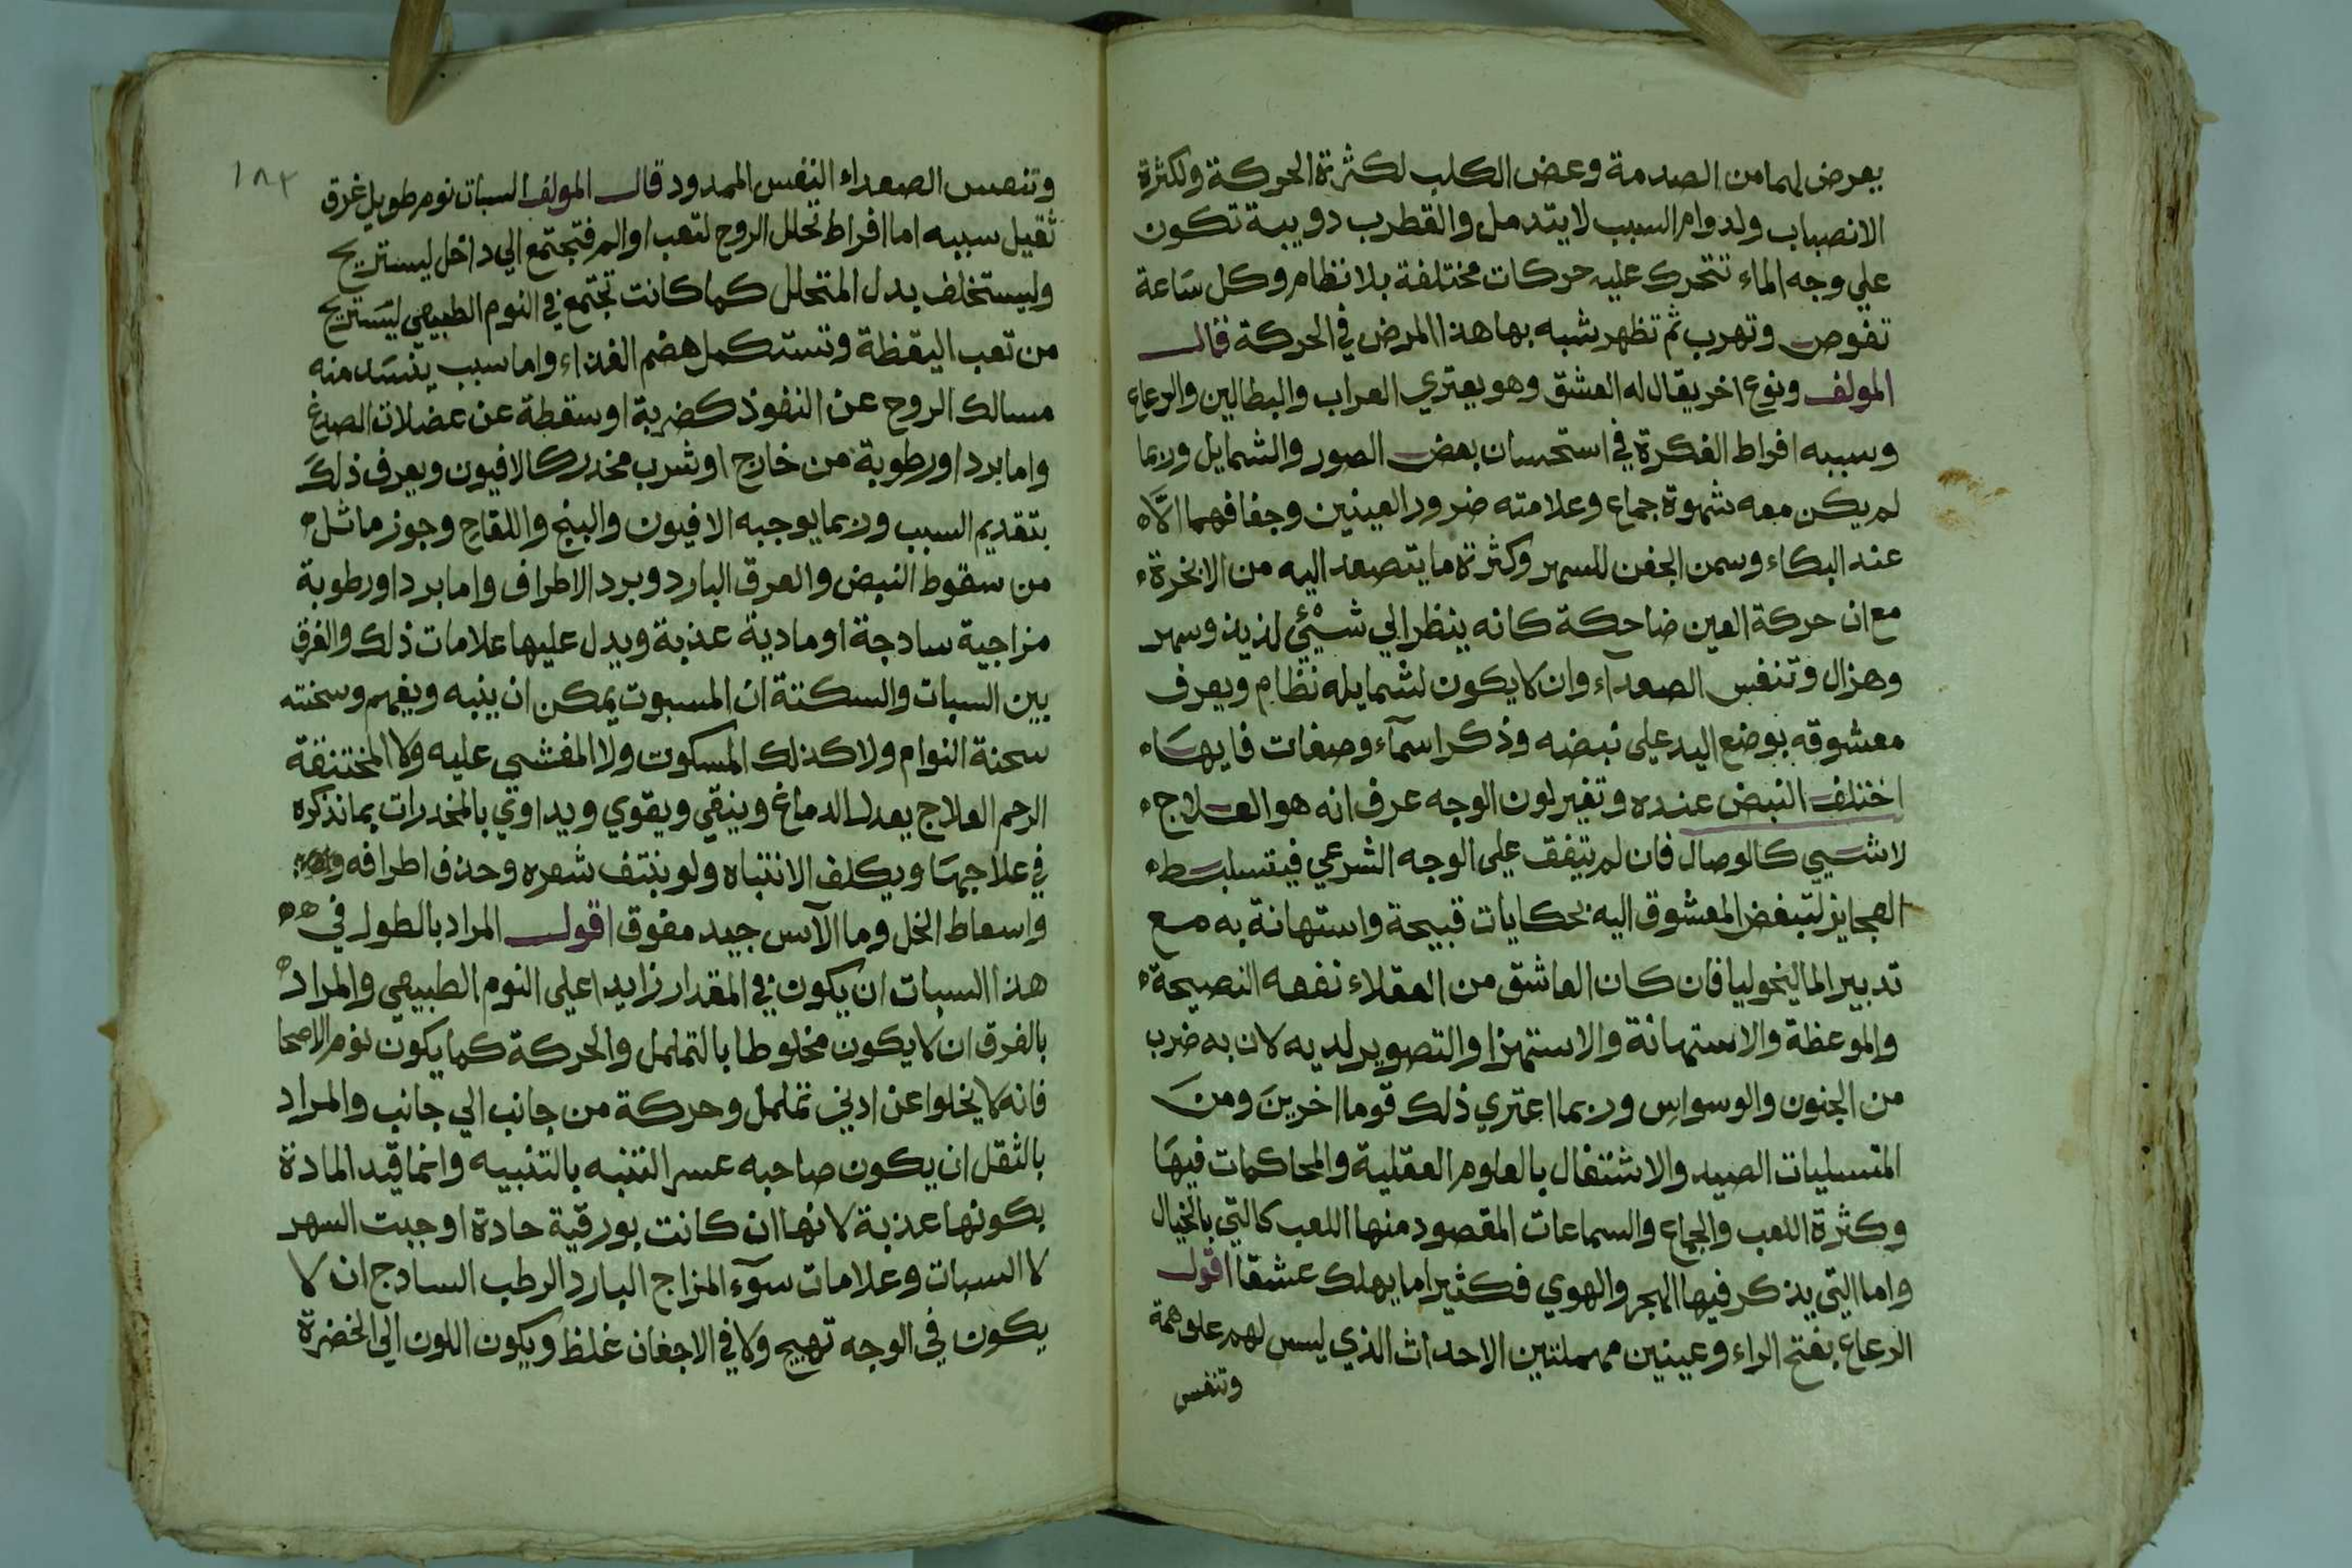 يعرض لهما من الصدمة وعض الكلب لكثرة الحركة ولكثرة
الانصباب ولدوام السبب لا يتدمل والقطرب دويبة تكون
علي وجه الماء تتحرك عليه حركات مختلفة بلا نظام وكل ساعة
تغوص وتهرب ثم تظهر شبه بها هذا المرض في الحركة قال
المولف ونوع اخر يقال له العشق وهو يعتري العزاب والبطالين والرعاع
وسببه افراط الفكرة في استحسان بعض الصور والشمايل وربما
لم يكن معه شهوة جماع وعلامته ضرور العينين وجفافهما الا
عند البكاء وسمن الجفن للسهر وكثرة ما يتصعد اليه من الابخرة
مع ان حركة العين ضاحكة كانه ينظر الي شيئ لذيذ وسهر
وهزال وتنفس الصعداء وان لا يكون لشمايله نظام ويعرف
معشوقه بوضع اليد علي نبضه وذكر اسمآء وصفات فايها
اختلف النبض عنده وتغير لون الوجه عرف انه هو العلاج
لا شيي كالوصال فان لم يتفق علي الوجه الشرعي فيتسلبسط
العجايز لتبغض المعشوق اليه بحكايات قبيحة واستهانة به مع
تدبير الماليخوليا فان كان العاشق من العقلاء نفعه النصيحة
والموعظة والاستهانة والاستهزا والتصوير لديه لان به ضرب
من الجنون والوسواس وربما اعتري ذلك قوما اخرين ومن
المتسليات الصيد والاشتغال بالعلوم العقلية والمحاكمات فيها
وكثرة اللعب والجماع والسماعات المقصود منها اللعب كالتي بالخيال
واما التي يذكر فيها الهجر والهوي فكثيرا ما يهلك عشقا اقول
الرعاع بفتح الراء وعينين مهملتين الاحداث الذي ليس لهم علو همة
وتنفس
١٨٢
وتنفس الصعداء النفس الممدود قال المولف السبات نوم طويل غرق
ثقيل سببه اما افراط تحلل الروح لتعب او الم فتجتمع الي داخل ليستريح
وليستخلف بدل المتحلل كما كانت تجتمع في النوم الطبيعي ليستريح
من تعب اليقظة وتستكمل هضم الغذاء واما سبب ينسد منه
مسالك الروح عن النفوذ كضربة او سقطة عن عضلات الصدغ
واما برد او رطوبة من خارج او شرب مخدر كالافيون ويعرف ذلك
بتقديم السبب وربما يوجبه الافيون والبنج واللقاح وجوز ماثل
من سقوط النبض والعرق البارد وبرد الاطراف واما برد او رطوبة
مزاجية سادجة او مادية عذبة ويدل عليها علامات ذلك والفرق
بين السبات والسكتة ان المسبوت يمكن ان ينبه ويفهم وسخنته
سحنة النوام ولا كذلك المسكوت ولا المغشي عليه ولا المختنقة
الرحم العلاج يعدل الدماغ وينقي ويقوي ويداوي بالمخدرات بما نذكره
في علاجها ويكلف الانتباه ولو بنتف شعره وحذف اطرافه
واسعاط الخل وما الآس جيد مفوق اقول المراد بالطول في
هذا السبات ان يكون في المقدار زايدا علي النوم الطبيعي والمراد
بالفرق ان لا يكون مخلوطا بالتململ والحركة كما يكون نوم الاصحا
فانه لا يخلوا عن ادني تململ وحركة من جانب الي جانب والمراد
بالثقل ان يكون صاحبه عسر التنبه بالتنبيه وانما قيد المادة
بكونها عذبة لانها ان كانت بورقية حادة اوجبت السهر
لا السبات وعلامات سوء المزاج البارد الرطب السادج ان لا
يكون في الوجه تهيج ولا في الاجفان غلظ ويكون اللون الي الخضرة